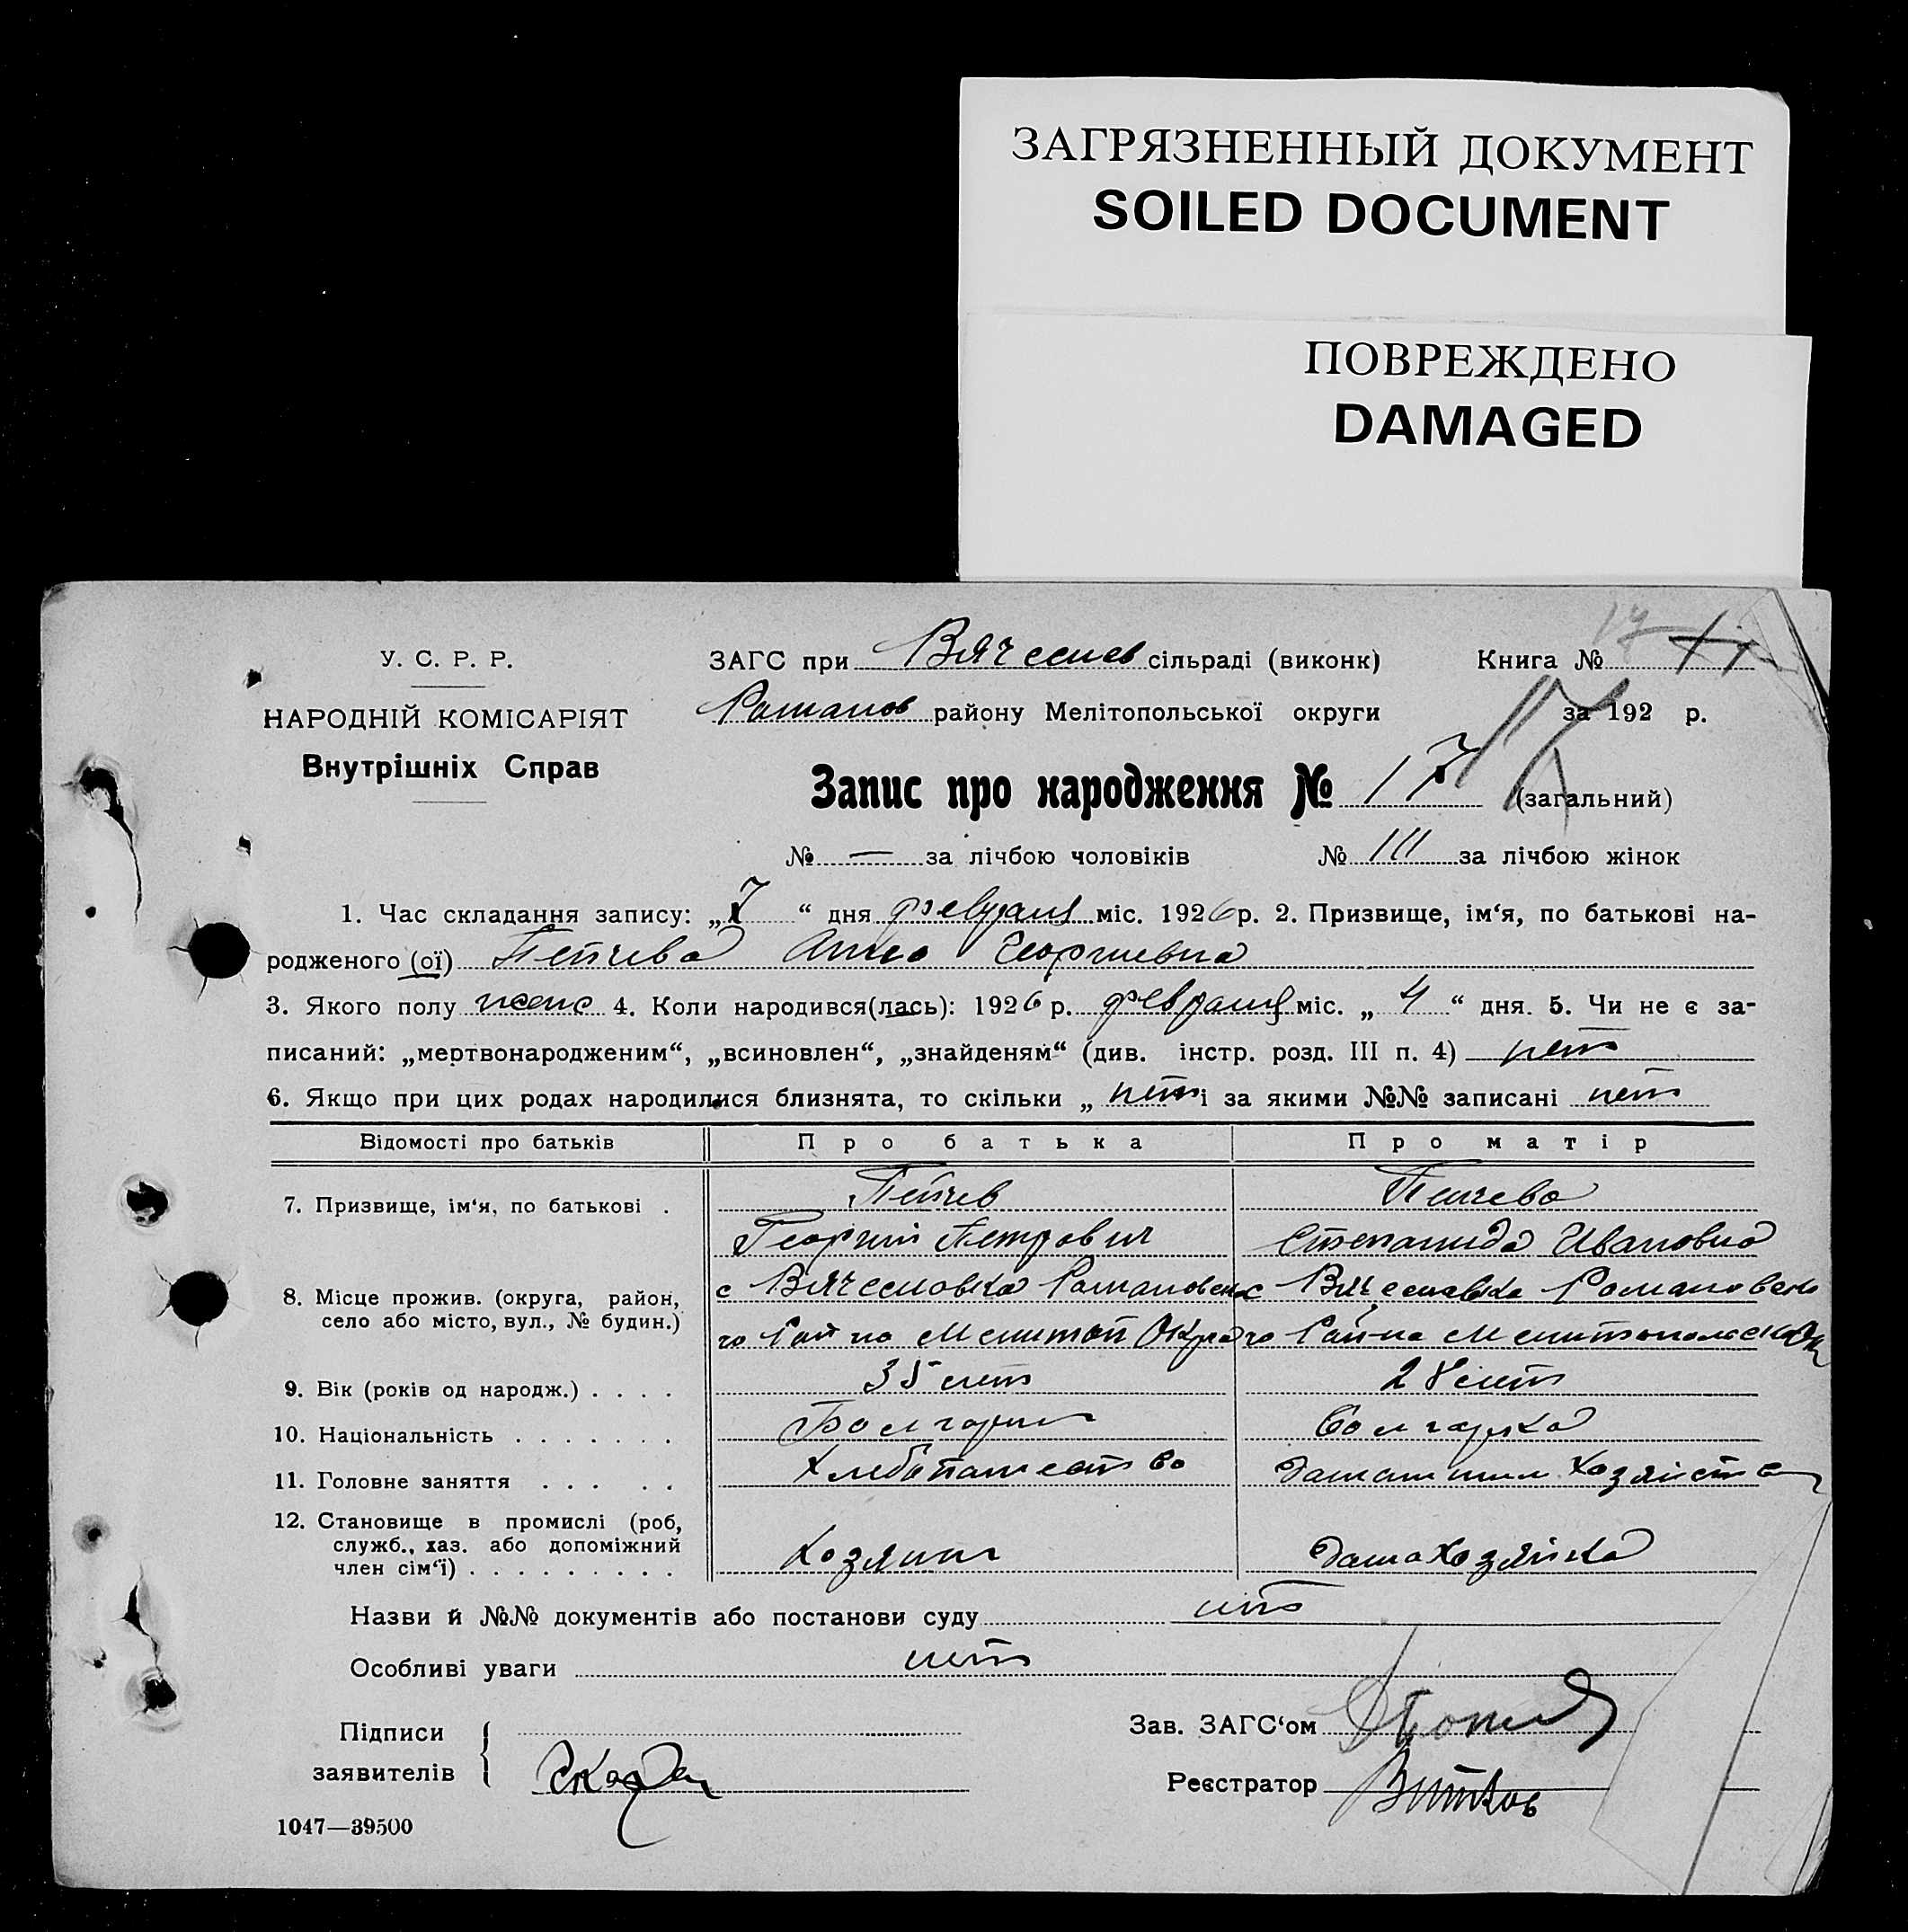 ЗАГРЯЗНЕННЫЙ ДОКУМЕНТ
SOILED DOCUMENT
ПОВРЕЖДЕНО
DAMAGED
У. С. Р. Р.
НАРОДНІЙ КОМІСАРІЯТ
Внутрішніх Справ
ЗАГС при Вячеслев сільраді (виконк) Книга №
Романов району Мелітопольської округи за 192 р.
Запис про народження № 17 (загальний)
№ — за лічбою чоловіків № III за лічбою жінок
1. Час складання запису: „7“ дня февраля міс. 1926 р. 2. Призвище, ім‘я, по батькові на-
родженого (ої) Пейчева Анна Георгиевна
3. Якого полу женс 4. Коли народився(лась): 1926 р. февраля міс. „4“ дня. 5. Чи не є за-
писаний: „мертвонародженим“, „всиновлен“, „знайденям“ (див. інстр. розд. III п. 4) нет
6. Якщо при цих родах народилися близнята, то скільки „ нет і за якими №№ записані нет
Відомості про батьків Про батька Про матір
7. Призвище, ім‘я, по батькові . Пейчев Пейчева
Георгий Петрович Степанида Ивановна
8. Місце прожив. (округа, район, с Вячесловка Романовск с Вячеславка Романовско
село або місто, вул., № будин.) го Рай на Мелитоп Окру го Рай-на Мелитопольской Ок
9. Вік (років од народж.) . . . . 35 лет 28 лет
10. Національність . . . . . . . Болгарин болгарка
11. Головне заняття . . . . . Хлебопашество Домашним Хозяйств
12. Становище в промислі (роб,
служб., хаз. або допоміжний
член сім‘ї) . . . . . . . . . Хозяин Домахозяйка
Назви й №№ документів або постанови суду нет
Особливі уваги нет
Підписи
заявителів
Зав. ЗАГС‘ом
Реєстратор Витков
1047—39500